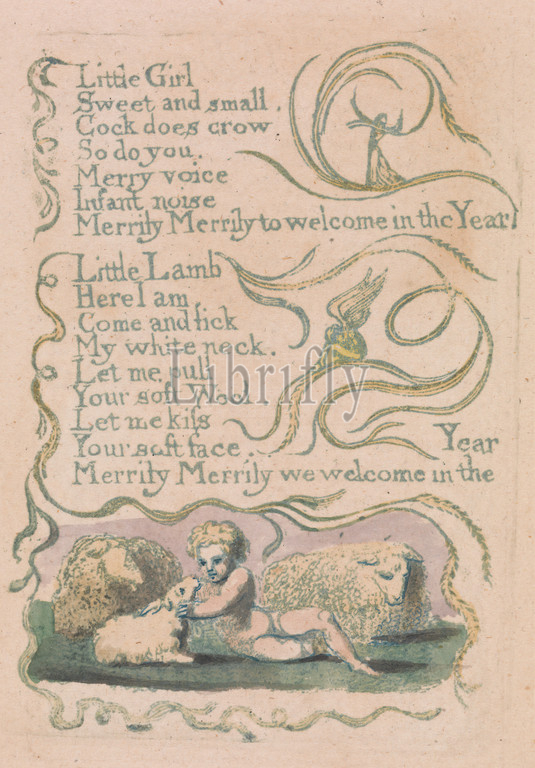 Little Girl
Sweet and small.
Cock does crow
So do you.
Merry voice
Infant noise
Merrily Merrily to welcome in the Year
Little Lamb
Here I am,
Come and lick
My white neck.
Let me pull
Your soft Wool
Let me kiss
Your soft face.
Year
Merrily Merrily we welcome in the
Librifly